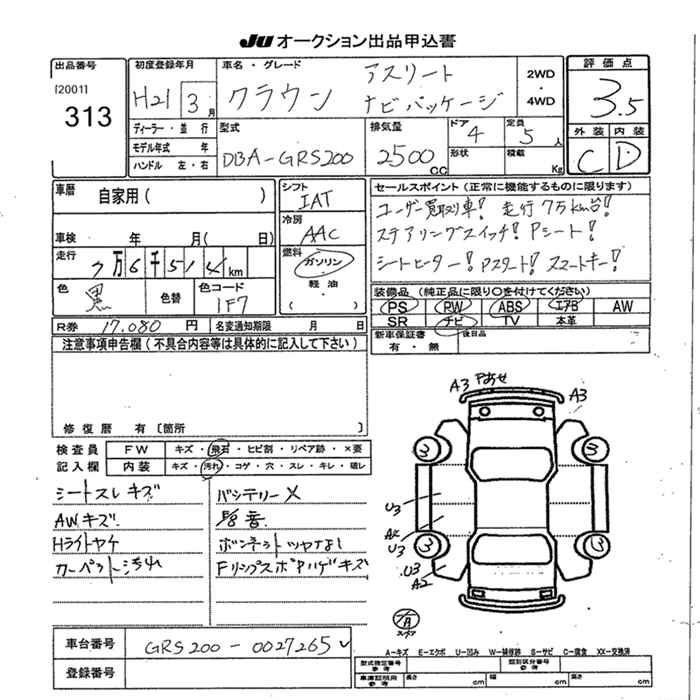 JU オークション出品申込書
出品番号
[2001]
313
初度登録年月
H21 3月
ディーラー・並 行
モデル年式 年
ハンドル 左・右
車名・グレード
アスリート
クラウン ナビパッケージ
2WD
・
4WD
評価点
3.5
外装 内装
C D
型式
DBA-GRS200
排気量
2500 CC
ドア 4
形状
定員 5人
積載 Kg
車歴 自家用( )
車検 年 月( 日)
走行
7万6千514km
色 黒 色替 色コード
1F7
シフト
IAT
冷房
AAC
燃料
ガソリン
・
軽油
( )
セールスポイント(正常に機能するものに限ります)
ユーザー買取り車! 走行7万km台!
ステアリングスイッチ! Pシート!
シートヒーター! Pスタート! スマートキー!
装備品(純正品に限り○を付けてください)
PS PW ABS エアB AW
SR ナビ TV 本革
新車保証書
有・無
後日品
R券 17,080 円 名変通知期限 月 日
注意事項申告欄(不具合内容等は具体的に記入して下さい)
修復歴 有〔箇所 〕
検査員
記入欄
FW キズ・飛石・ヒビ割・リペア跡・×要
内装 キズ・汚れ・コゲ・穴・スレ・キレ・破レ
シートスレキズ バッテリーX
AWキズ 異音
Hライトヤケ ボンネットツヤなし
カーペット汚れ FリップスポPハゲキズ
A3 Pあせ A3
3 3
U3
A2
U3
3 3
U3
A2
A-キズ E-エクボ U-凹み W-補修跡 S-サビ C-腐食 XX-交換済
車台番号 GRS200-0027265
登録番号
型式指定番号
参考
類別区分番号
参考
車庫証明用
参考
長さ cm 幅 cm 高さ cm